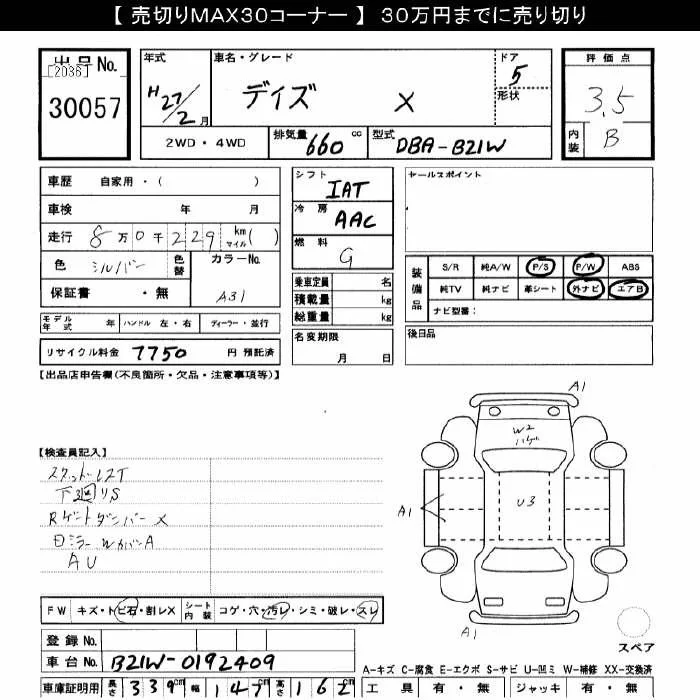 【 売切りMAX30コーナー 】 30万円までに売り切り
出品No.
[2036]
30057
年式
H27/2月
車名・グレード
デイズ X
ドア
5
形状
2WD・4WD
排気量 660 cc
型式 DBA-B21W
評価点
3.5
内装 B
車歴 自家用・( )
車検 年 月
走行 8万0千229 km マイル( )
色 シルバー 色替
カラーNo.
A31
保証書 ・無
モデル年式 年 ハンドル 左・右 ディーラー・並行
リサイクル料金 7750 円 預託済
シフト
IAT
冷房
AAC
燃料
G
乗車定員 名
積載量 kg
総重量 kg
名変期限
月 日
セールスポイント
装備品
S/R 純A/W P/S P/W ABS
純TV 純ナビ 革シート 外ナビ エアB
ナビ型番:
後日品
【出品店申告欄(不良箇所・欠品・注意事項等)】
【検査員記入】
下廻りS
Rゲートダンパー X
AU
A1
W2
ハゲ
U3
A1
A1
FW キズ・トビ石・割レX シート内装 コゲ・穴・汚レ・シミ・破レ・スレ
登録No.
車台No. B21W-0192409
車庫証明用 長さ 339cm 幅 147cm 高さ 162cm
スペア
A-キズ C-腐食 E-エクボ S-サビ U-凹ミ W-補修 XX-交換済
工具 有・無 ジャッキ 有・無